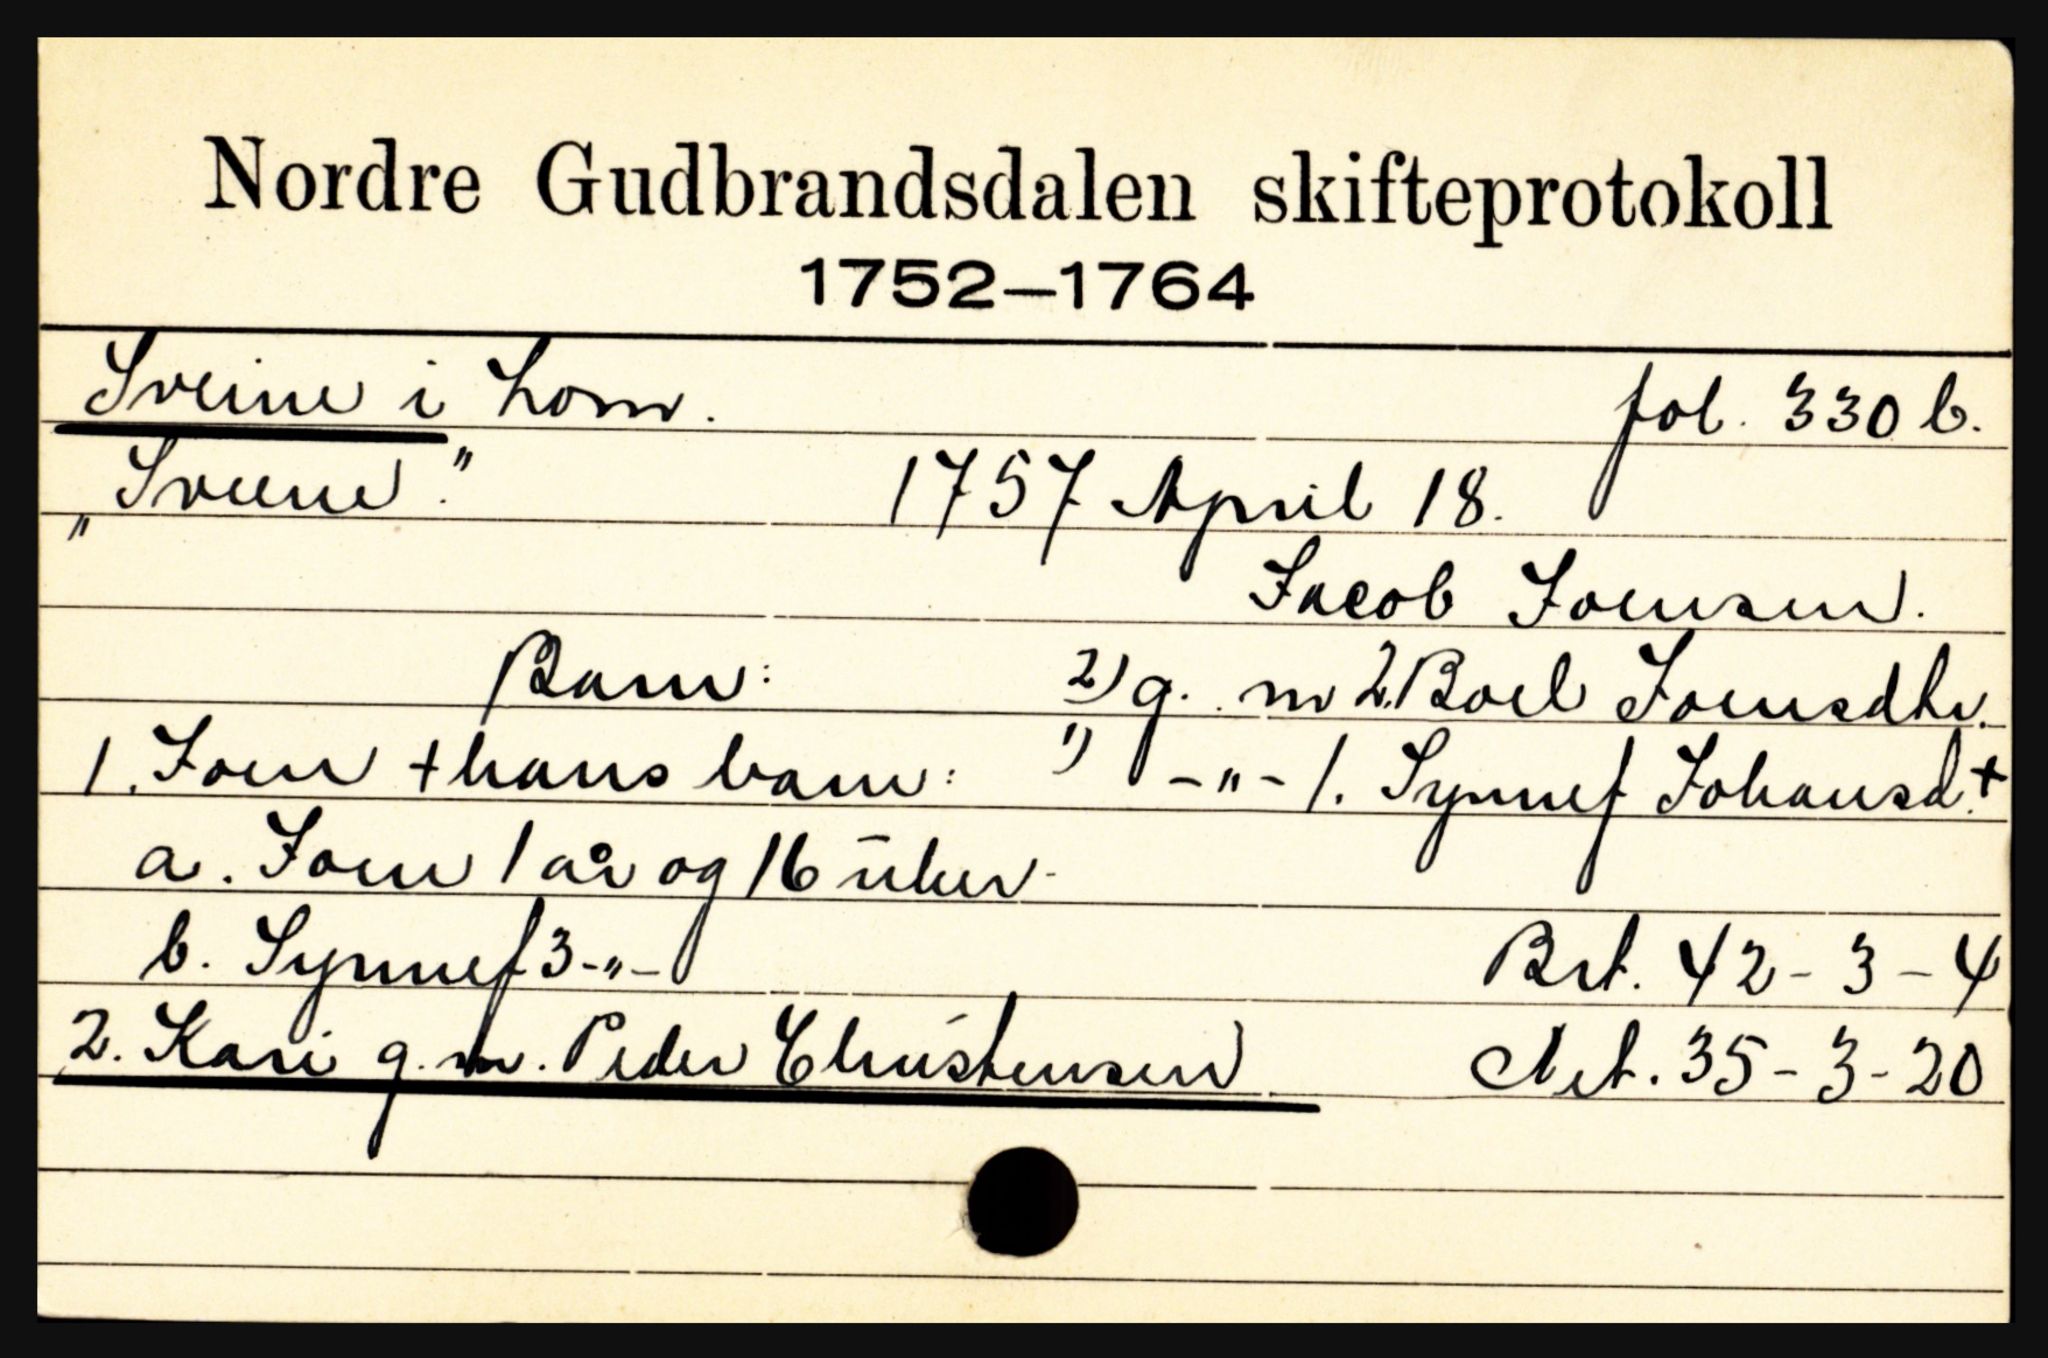 Nordre Gudbrandsdalen skifteprotokoll
1752—1764
Sveine i Lom. fol. 330 b.
"Sveene". 1757 April 18.
Jacob Joensen.
Barn: 2) g. m 2. Boel Joensdtr.
1. Joen + hans barn: 1) -"- 1. Synnef Johansd. +
a. Joen 1 år og 16 uker
b. Synnef 3 -"-
Brt. 42-3-4
2. Kari g. m. Peder Christensen Net. 35-3-20